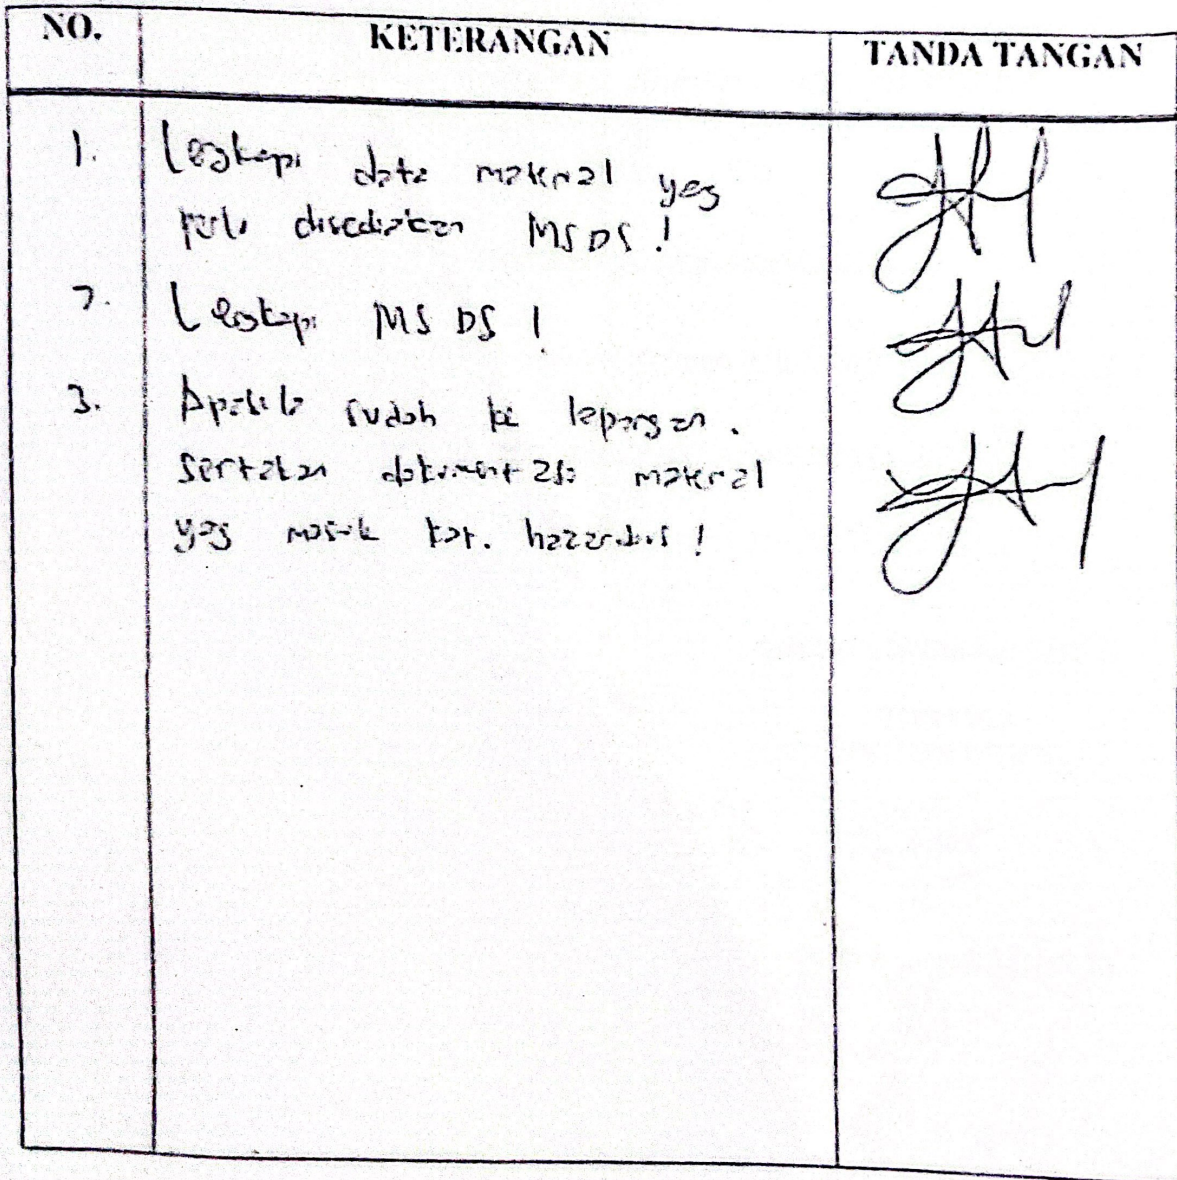 NO. KETERANGAN TANDA TANGAN
1. Lengkapi data material yang
perlu disediakan MSDS!
2. Lengkapi MSDS!
3. Apabila sudah ke lapangan.
sertakan dokumentasi material
yang masuk kat. hazardous!